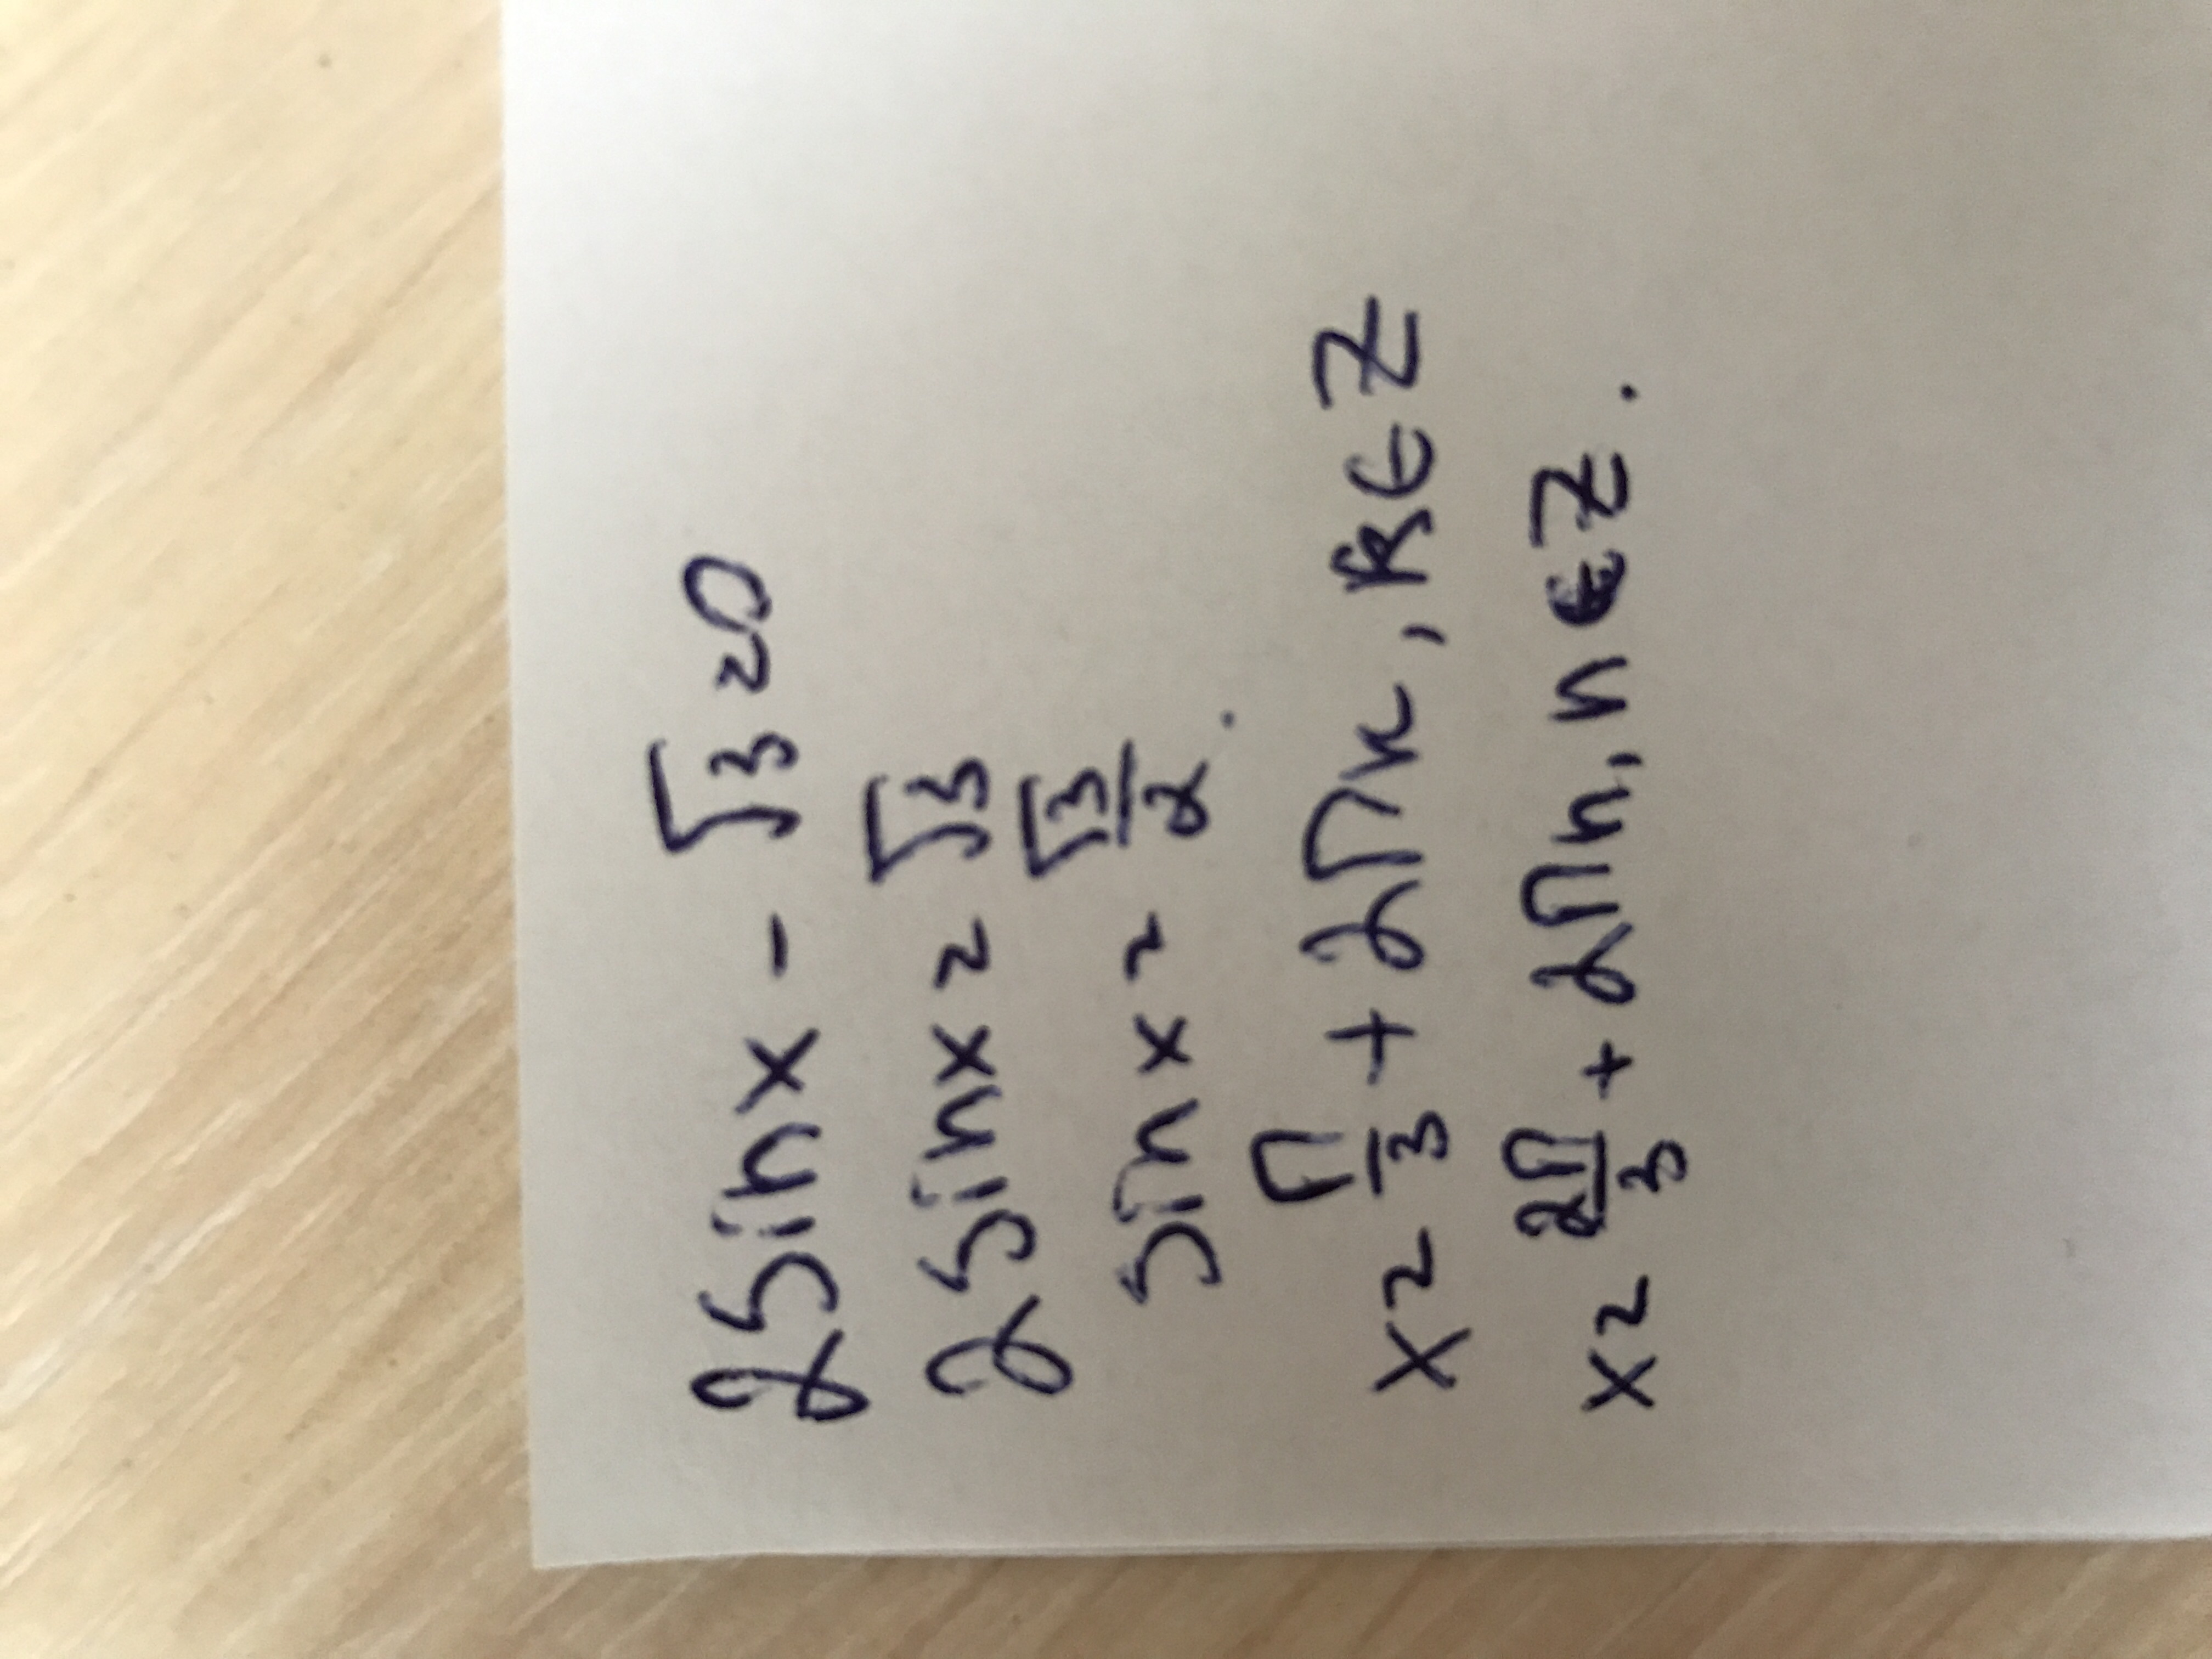 2sinx - √3 = 0
2sinx = √3
sinx = √3/2.
x = π/3 + 2πk, k∈Z
x = 2π/3 + 2πn, n∈Z.